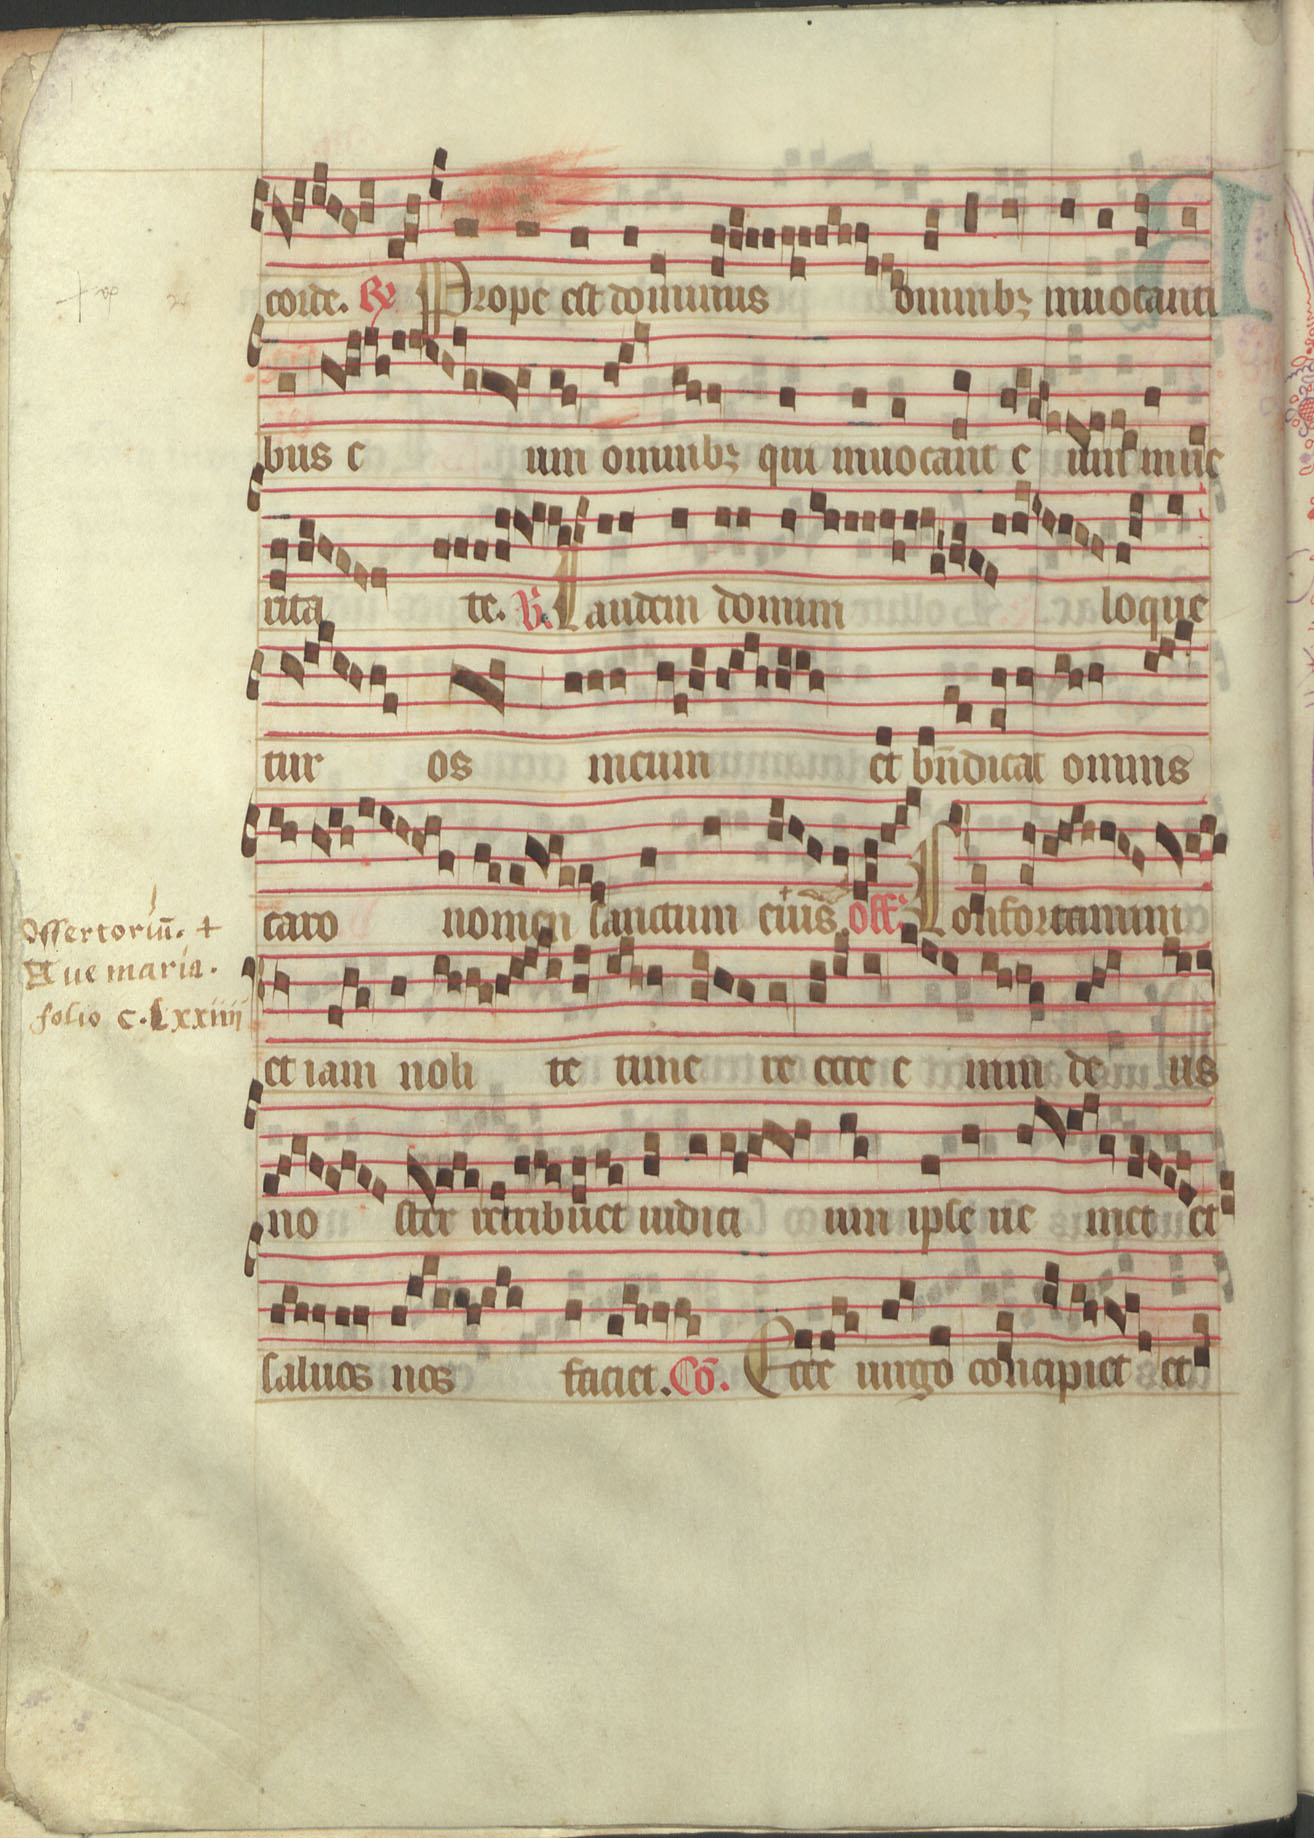 corde. R Prope est dominus omnibꝫ inuocanti
bus e um omnibꝫ qui inuocant e um in ue
rita te. V. Laudem domini loque
tur os meum et bn̄dicat omnis
caro nomen sanctum eius. Off. Confortamini
Offertoriū. +
Aue maria.
folio c.lxxiiii
et iam noli te time re ecce e nim de us
no ster retribuet iudici um ipse ue niet et
saluos nos faciet. Cō. Ecce uirgo concipiet et